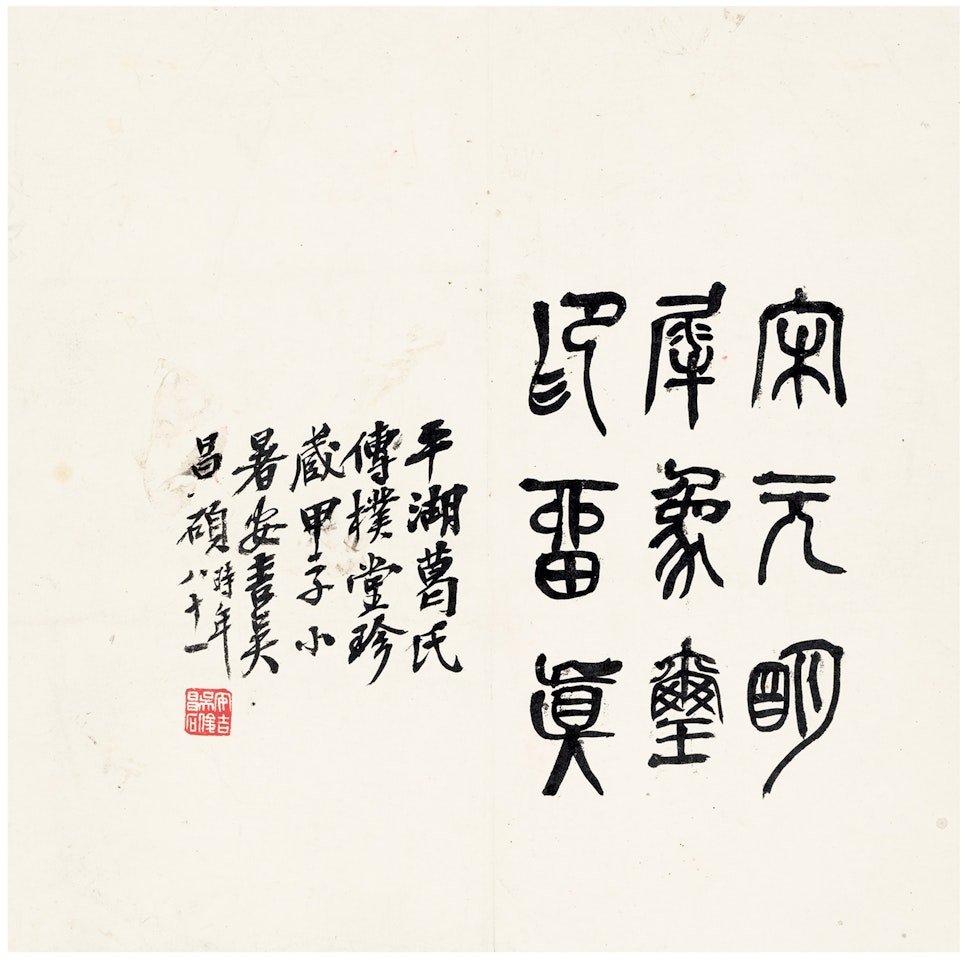 宋元明
犀象璽
印畱眞
平湖葛氏
傳樸堂珍
藏甲子小
暑安吉吳
昌碩時年八十一
安吉吳俊昌石